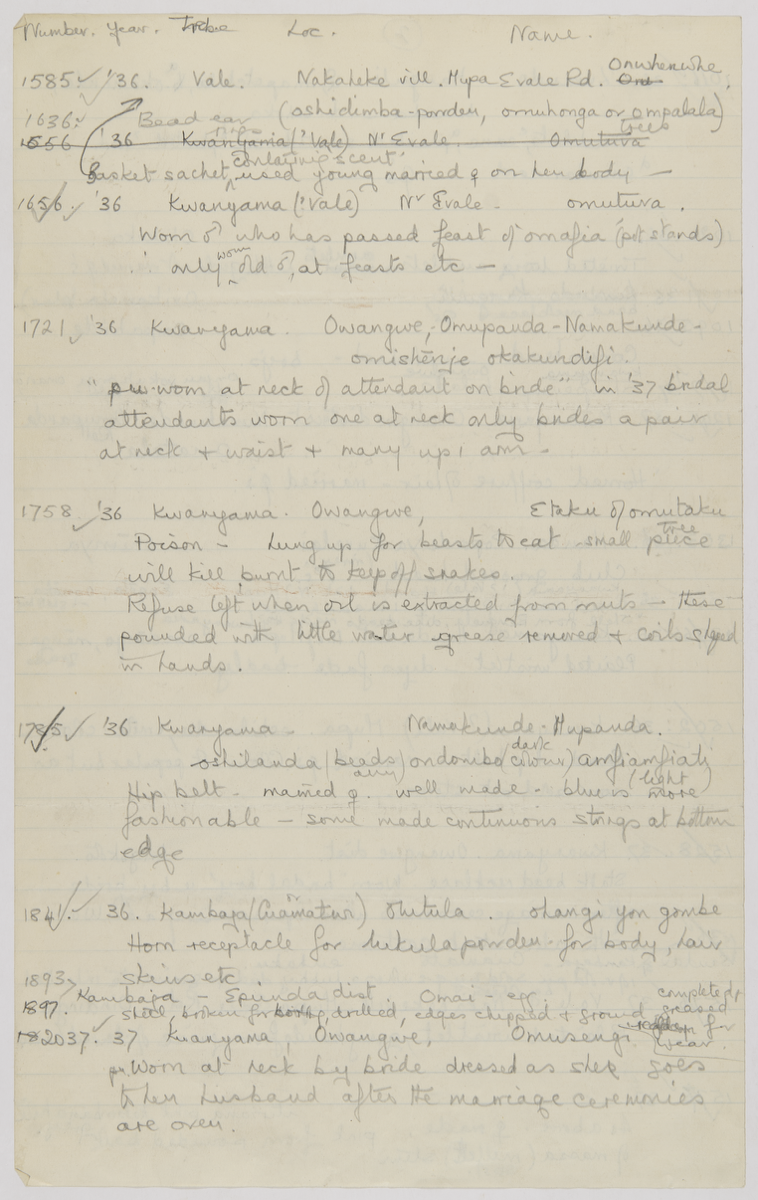 Number. Year. Tribe Loc. Name.
1585 ✓ '36. Vale. Nakaheke vill. Mupa Evale Rd. Onwhenwhe.
1636 ✓ Bead ear rings (oshidimba-powder, omuhonga or ompalala) trees
1656 '36 Kwanyama (? Vale) Nr Evale. Omutuva
Basket sachet, containing scent, used young married ♀ on her body —
1656. ✓ '36 Kwanyama (? Vale) Nr Evale - omutuva.
Worn ♂ who has passed feast of omafia (pot stands)
only worn old ♂, at feasts etc —
1721 ✓ '36 Kwanyama. Owangwe, - Omupanda - Namakunde -
omishenje okakundifi.
" worn at neck of attendant on bride" in '37 bridal
attendants worn one at neck only brides a pair
at neck + waist + many up 1 arm -
1758 ✓ '36 Kwanyama. Owangwe, Etaku of omutaku tree
Poison - hung up for beasts to eat small piece
will kill, burnt to keep off snakes.
Refuse left when oil is extracted from nuts — these
pounded with little water grease removed + coils shaped
in hands.
1785 ✓ '36 Kwanyama - Namakunde - Mupanda.
oshilanda (beads) ondombo (dark colour) amfiamfiati
Hip belt - married ♀. well made - blue is (light) more
fashionable — some made continuous strings at bottom
edge
1841 ✓ 36. Kambaja (Cuamatur) Otutula. ohangi yon gombe
Horn receptacle for lukula powder - for body, hair
skins etc.
1893
1897. Kambaja - Epunda dist. Omai - egg. completed,
shell, broken for boring, drilled, edges chipped + ground greased
for wear.
2037. ✓ 37 Kuanyama, Owangwe, Omusengi
Worn at neck by bride dressed as she goes
to her husband after the marriage ceremonies
are over.